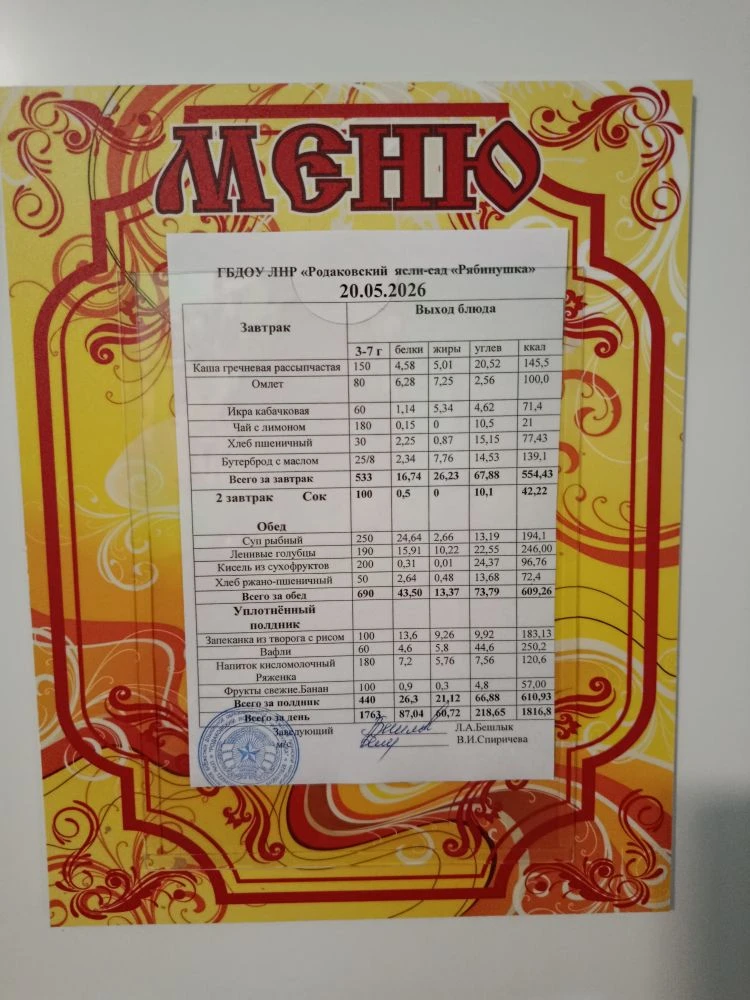 МЕНЮ
ГБДОУ ЛНР «Родаковский ясли-сад «Рябинушка»
20.05.2026
Завтрак Выход блюда
3-7 г белки жиры углев ккал
Каша гречневая рассыпчастая 150 4,58 5,01 20,52 145,5
Омлет 80 6,28 7,25 2,56 100,0
Икра кабачковая 60 1,14 5,34 4,62 71,4
Чай с лимоном 180 0,15 0 10,5 21
Хлеб пшеничный 30 2,25 0,87 15,15 77,43
Бутерброд с маслом 25/8 2,34 7,76 14,53 139,1
Всего за завтрак 533 16,74 26,23 67,88 554,43
2 завтрак Сок 100 0,5 0 10,1 42,22
Обед
Суп рыбный 250 24,64 2,66 13,19 194,1
Ленивые голубцы 190 15,91 10,22 22,55 246,00
Кисель из сухофруктов 200 0,31 0,01 24,37 96,76
Хлеб ржано-пшеничный 50 2,64 0,48 13,68 72,4
Всего за обед 690 43,50 13,37 73,79 609,26
Уплотнённый
полдник
Запеканка из творога с рисом 100 13,6 9,26 9,92 183,13
Вафли 60 4,6 5,8 44,6 250,2
Напиток кисломолочный 180 7,2 5,76 7,56 120,6
Ряженка
Фрукты свежие.Банан 100 0,9 0,3 4,8 57,00
Всего за полдник 440 26,3 21,12 66,88 610,93
Всего за день 1763 87,04 60,72 218,65 1816,8
Заведующий Л.А.Бешлык
м/с В.И.Спиричева